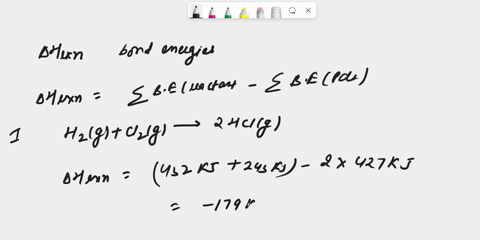 ΔHrxn bond energies
ΔHrxn = Σ B.E (reactant - Σ B.E (Pdt)
I H₂(g) + Cl₂(g) → 2 HCl(g)
ΔHrxn = (432 KJ + 243 KJ) - 2 × 427 KJ
= -179 K